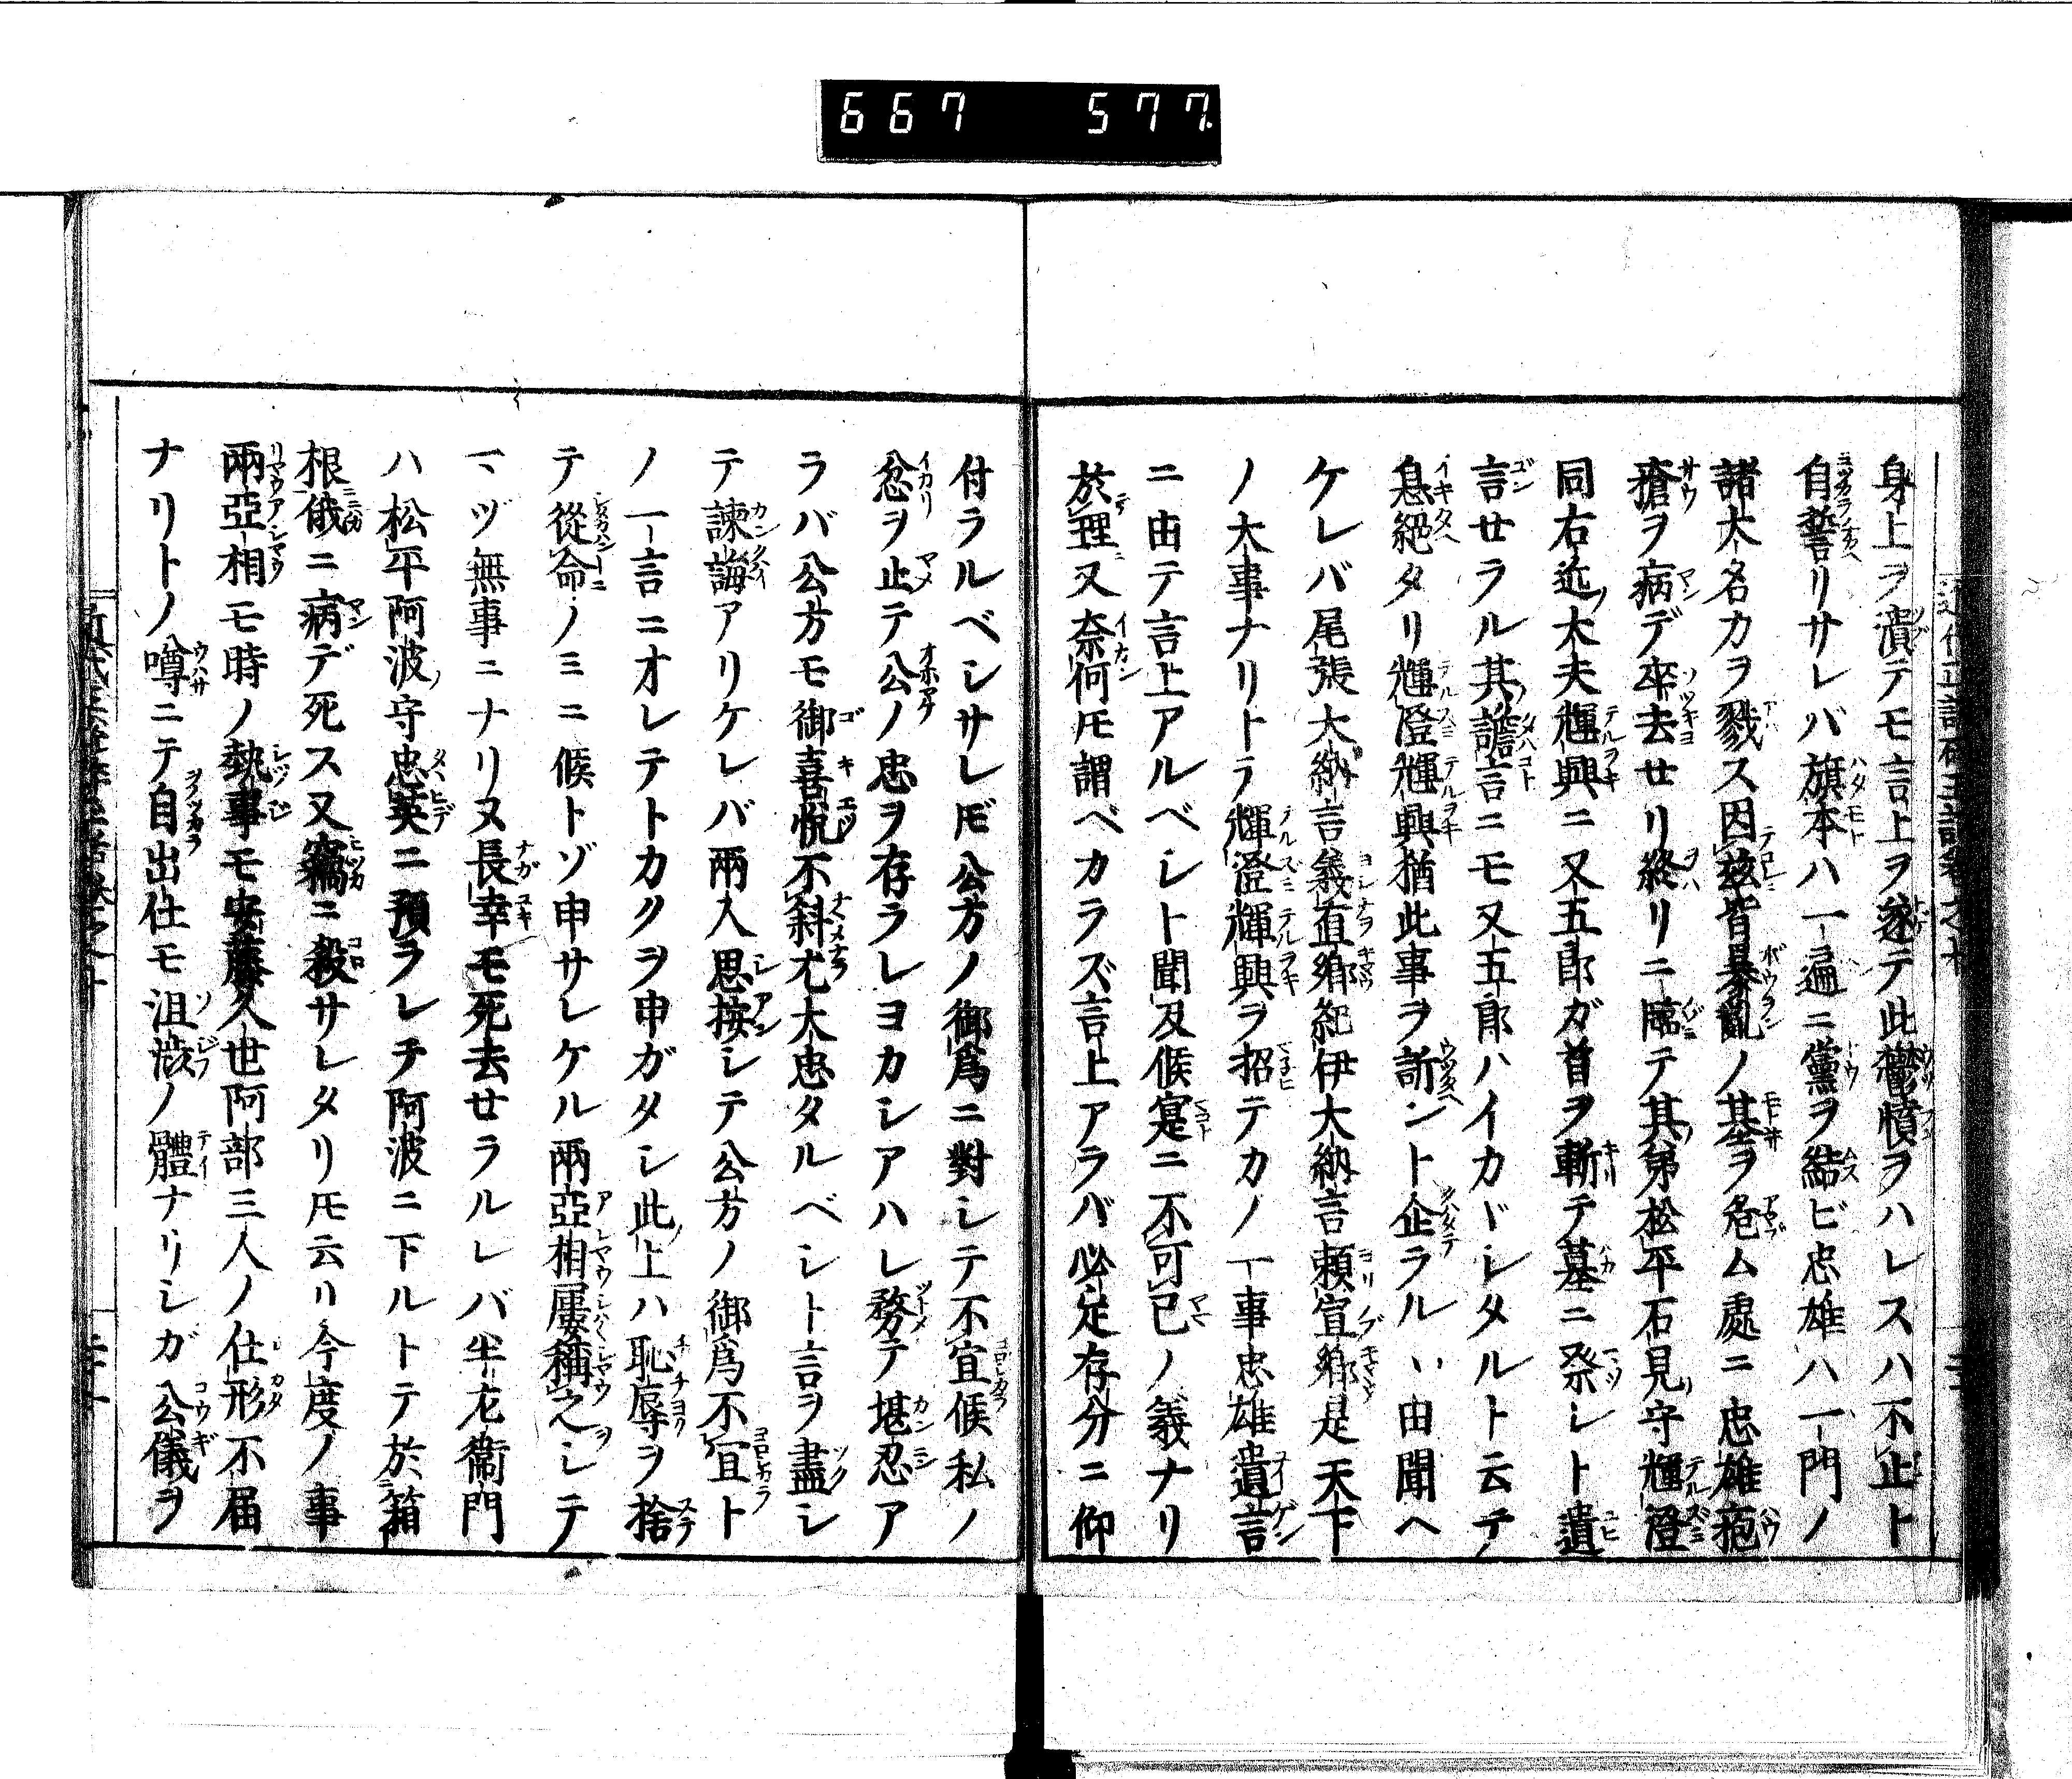 667 577
身上ヲ潰テモ言上ヲ遂テ此鬱憤ヲハレスハ不止ト
自誓リサレバ旗本ハ一遍ニ黨ヲ結ビ忠雄ハ一門ノ
諸大名カヲ戮ス因茲皆暴亂ノ基ヲ危ム處ニ忠雄疱
瘡ヲ病デ卒去セリ終リニ臨テ其弟松平石見守輝澄
同右近大夫輝興ニ又五郎ガ首ヲ斬テ墓ニ祭レト遺
言セラル其譫言ニモ又五郎ハイカヾシタルト云テ
息絕タリ輝澄輝興猶此事ヲ訴ント企ラルヽ由聞ヘ
ケレバ尾張大納言義直卿紀伊大納言頼宣卿是天下
ノ大事ナリトラ輝澄輝興ヲ招テカノ一事忠雄遺言
ニ由テ言上アルベシト聞及候寔ニ不可已ノ義ナリ
於理又奈何𪜈謂ベカラズ言上アラバ必定存分ニ仰
付ラルベシサレ𪜈公方ノ御爲ニ對シテ不宜候私ノ
忿ヲ止テ公ノ忠ヲ存ラレヨカシアハレ務テ堪忍ア
ラバ公方モ御喜悦不斜尤大忠タルベシト言ヲ盡シ
テ諫誨アリケレバ兩人思按シテ公方ノ御爲不宜ト
ノ一言ニオレテトカクヲ申ガタシ此上ハ恥辱ヲ捨
テ從命ノミニ候トゾ申サレケル兩亞相屢稱之シテ
マヅ無事ニナリヌ長幸モ死去セラルレバ半左衞門
ハ松平阿波守忠英ニ預ラレテ阿波ニ下ルトテ於箱
根俄ニ病デ死ス又竊ニ殺サレタリ𪜈云リ今度ノ事
兩亞相モ時ノ執事モ安藤久世阿部三人ノ仕形不届
ナリトノ噂ニテ自出仕モ沮澁ノ體ナリシガ公儀ヲ